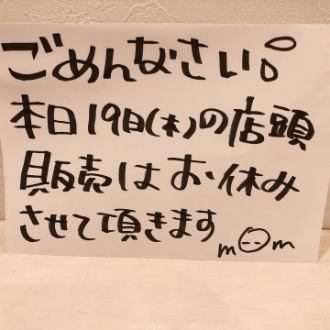 ごめんなさい。
本日19日(木)の店頭
販売はお休み
させて頂きます m(--)m